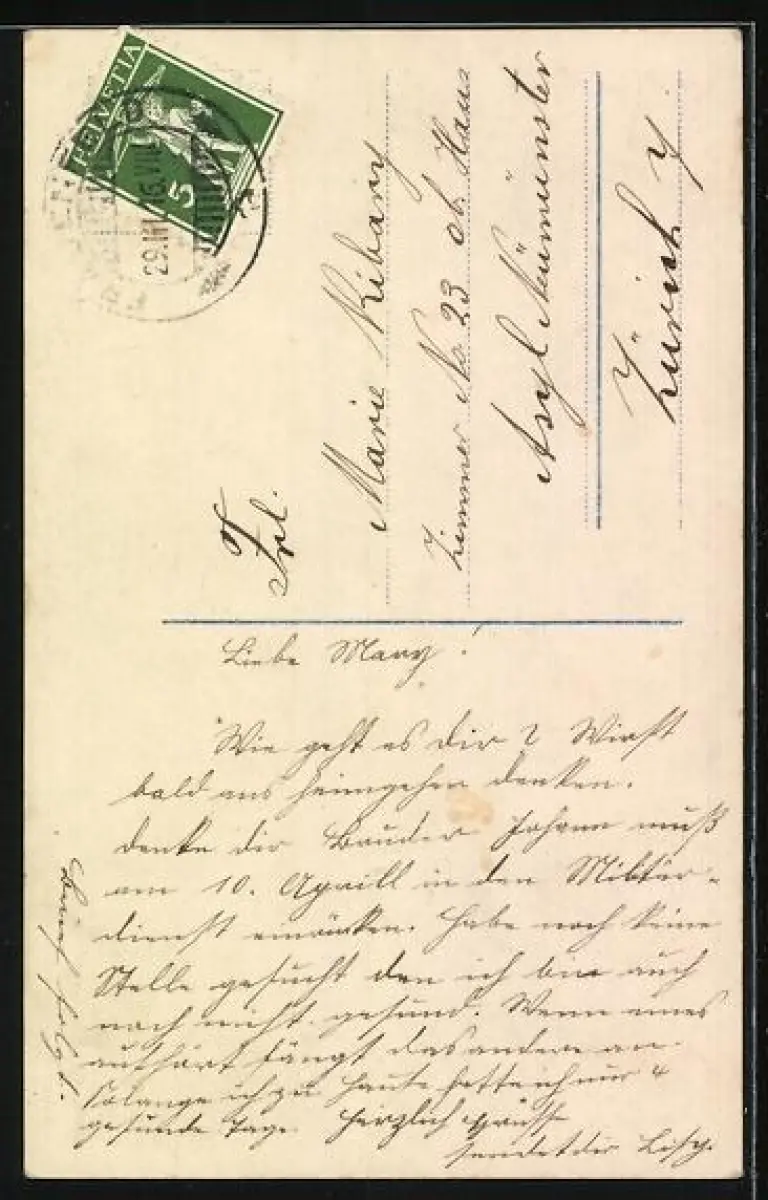 HELVETIA
5
29.III. 16.VIII
Frl.
Marie Ribary
Zimmer No. 23 ob. Haus
Asyl Neumünster
Zürich 7
Liebe Mary!
Wie geht es dir? Wirst
bald ans heimgehen denken.
denke dir Bruder Johann muß
am 10. Aprill in den Militär-
dienst einrücken. Habe noch keine
Stelle gesucht den ich bin auch
noch nicht gesund. Wenn eines
aufhört fängt das andere an.
Solange ich zu Hause hatte ich nur 4
gesunde Tage. Herzlich Grüsse
sendet dir
Brief folgt.